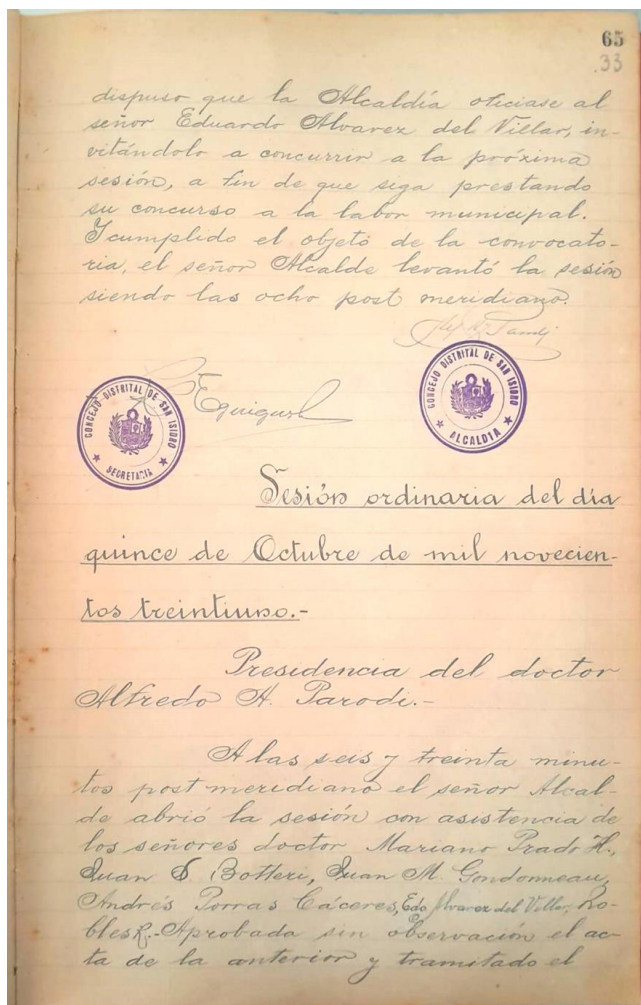 65
33
dispuso que la Alcaldía oficiase al
señor Eduardo Alvarez del Villar, in-
vitándolo a concurrir a la próxima
sesión, a fin de que siga prestando
su concurso a la labor municipal.
Y cumplido el objeto de la convocato-
ria, el señor Alcalde levantó la sesión
siendo las ocho post meridiano.
CONCEJO DISTRITAL DE SAN ISIDRO
ALCALDIA
CONCEJO DISTRITAL DE SAN ISIDRO
SECRETARIA
Sesión ordinaria del día
quince de Octubre de mil novecien-
tos treintiuno.-
Presidencia del doctor
Alfredo A. Parodi.-
A las seis y treinta minu-
tos post meridiano el señor Alcal-
de abrió la sesión con asistencia de
los señores doctor Mariano Prado H.,
Juan S. Botteri, Juan M. Gondonneau,
Andrés Porras Cáceres, Edo Alvarez del Villar, Ro-
bles R.- Aprobada sin observación el ac-
ta de la anterior y tramitado el